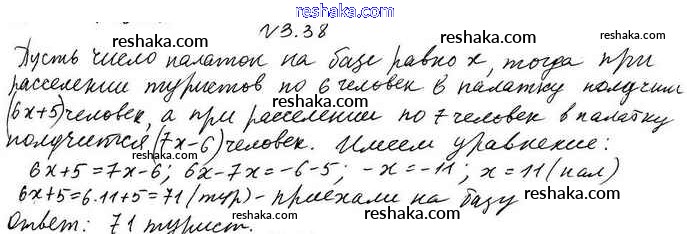 reshaka.com
N3.38
Пусть число палаток на базе равно x, тогда при
reshaka.com reshaka.com reshaka.com
расселении туристов по 6 человек в палатку получим
(6x+5) человек, а при расселении по 7 человек в палатку
reshaka.com reshaka.com reshaka.com
получится (7x-6) человек. Имеем уравнение:
6x+5=7x-6; 6x-7x=-6-5; -x=-11; x=11 (пал)
6x+5=6·11+5=71 (тур) - приехали на базу
reshaka.com reshaka.com reshaka.com
Ответ: 71 турист.